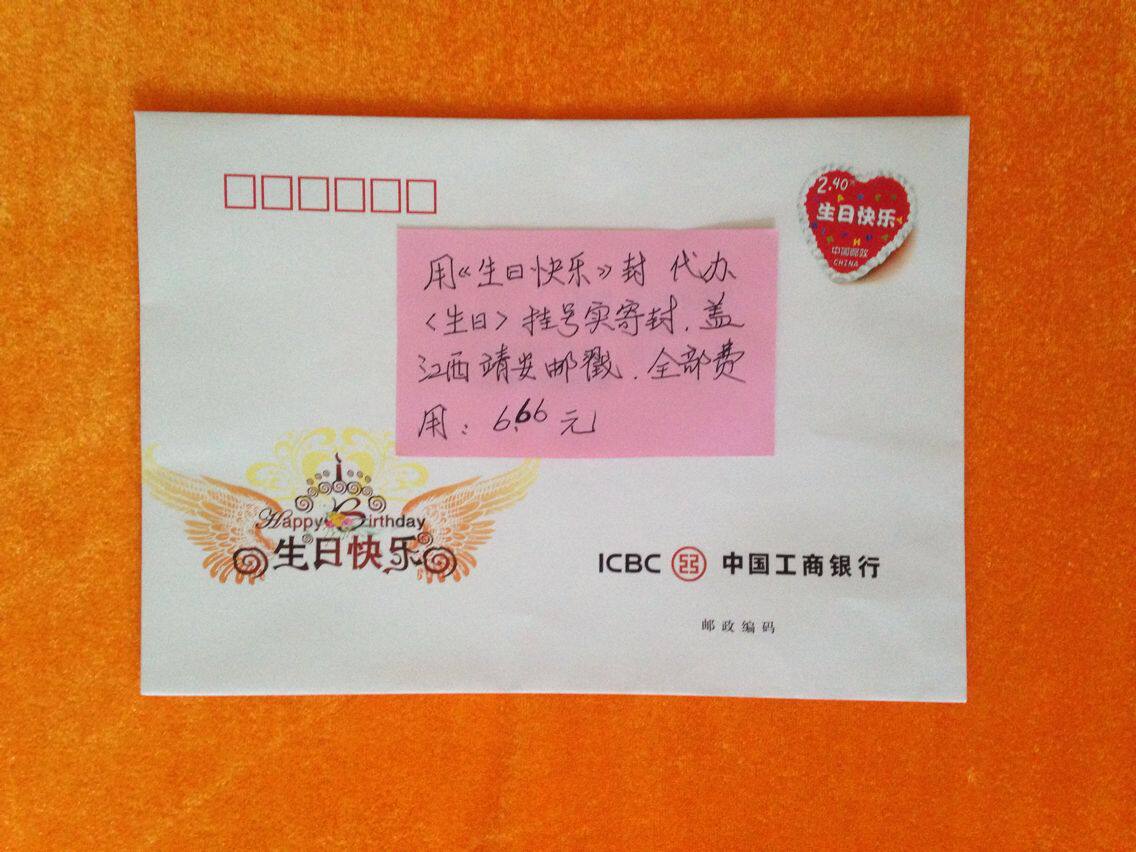 2.40
生日快乐
中国邮政
CHINA
用《生日快乐》封 代办
〈生日〉挂号实寄封.盖
江西靖安邮戳.全部费
用:6.66元
Happy Birthday
生日快乐
ICBC 中国工商银行
邮政编码